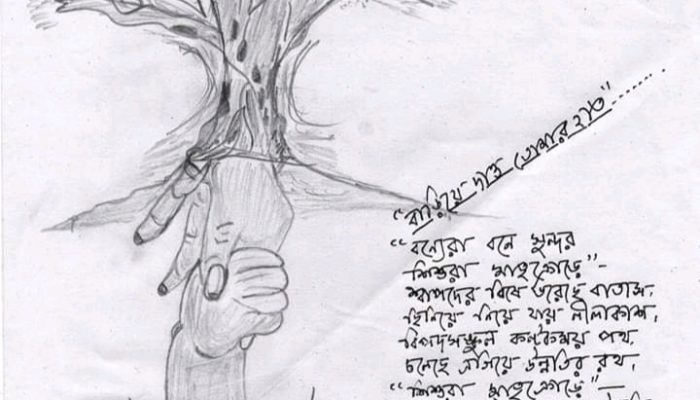 "বাড়িয়ে দাও তোমার হাত"........
"বন্যেরা বনে সুন্দর
শিশুরা মাতৃক্রোড়ে"-
শ্বাপদের বিষে ভরেছে বাতাস,
ছিনিয়ে নিয়ে যায় নীলাকাশ,
বিপদসঙ্কুল কণ্টকময় পথ,
চলেছে এগিয়ে উন্নতির রথ,
"শিশুরা মাতৃক্রোড়ে"-